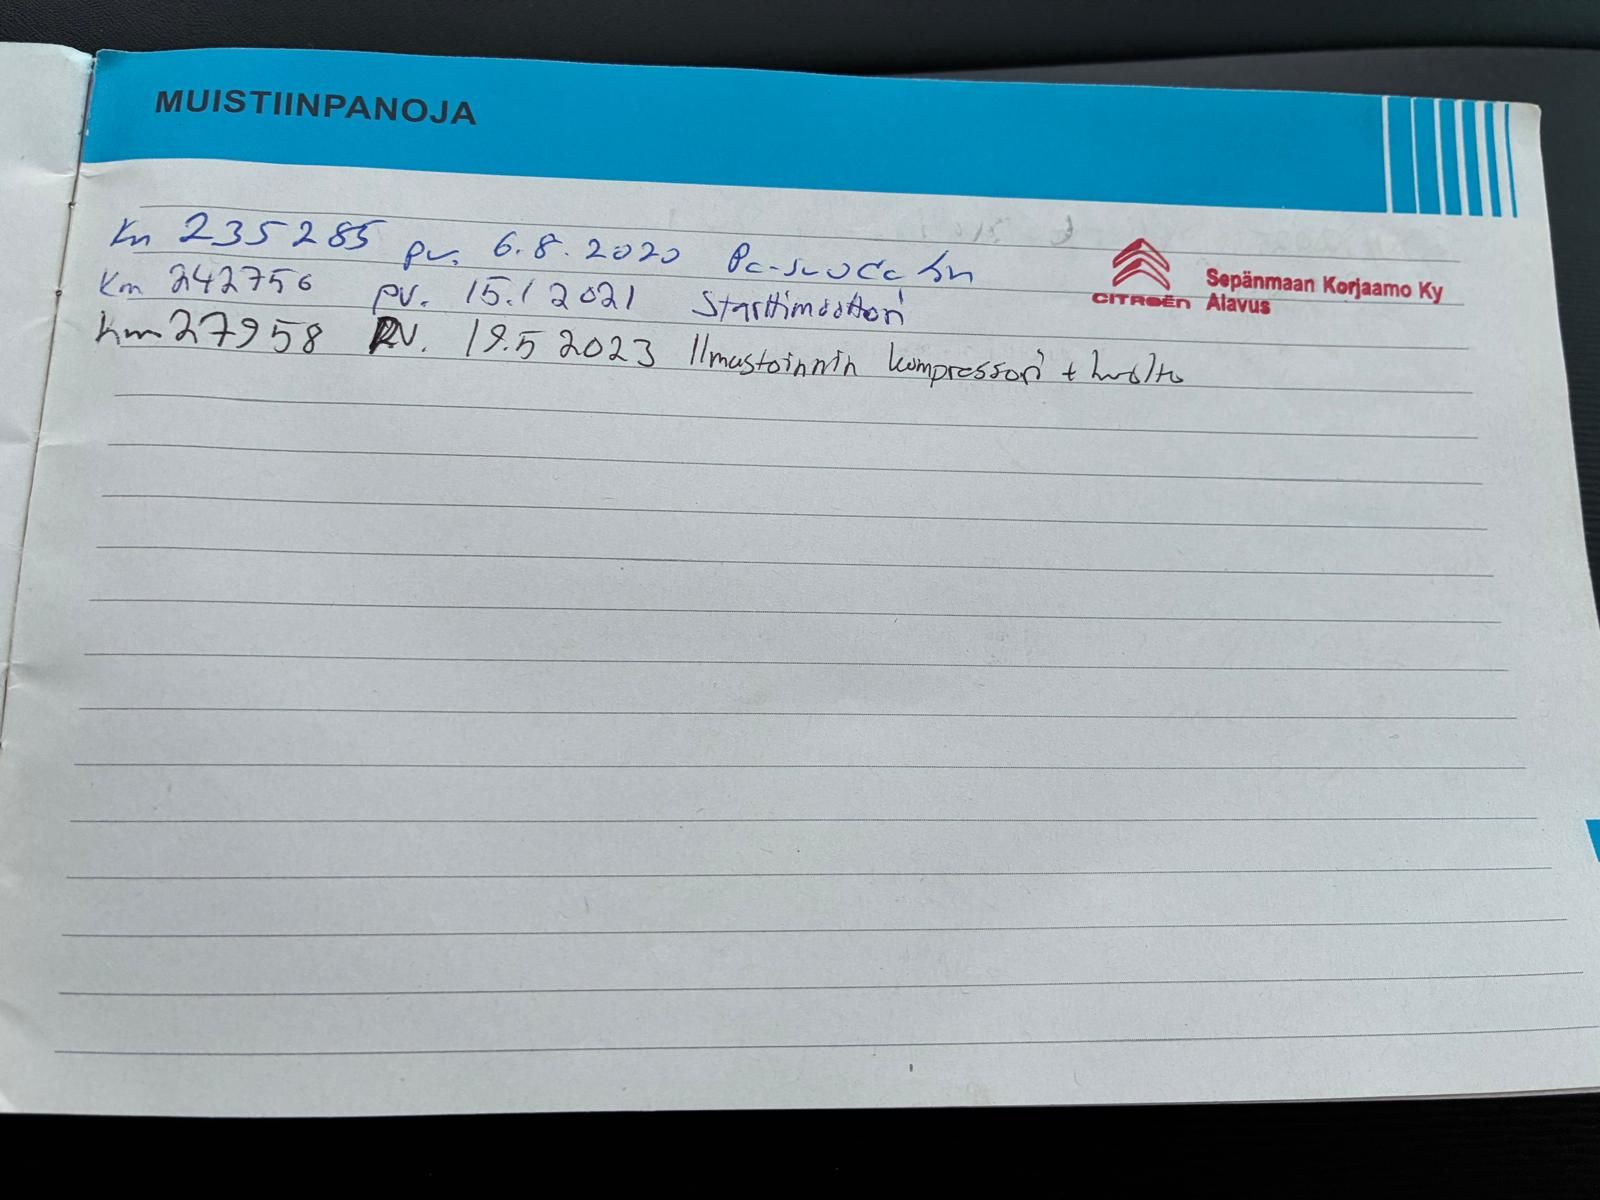 MUISTIINPANOJA
Km 235285 pv. 6.8.2020 Pa-suodatin
CITROËN Sepänmaan Korjaamo Ky
Alavus
Km 242756 pv. 15.1 2021 Starttimoottori
Km 27958 PV. 19.5 2023 Ilmastoinnin kompressori + huolto